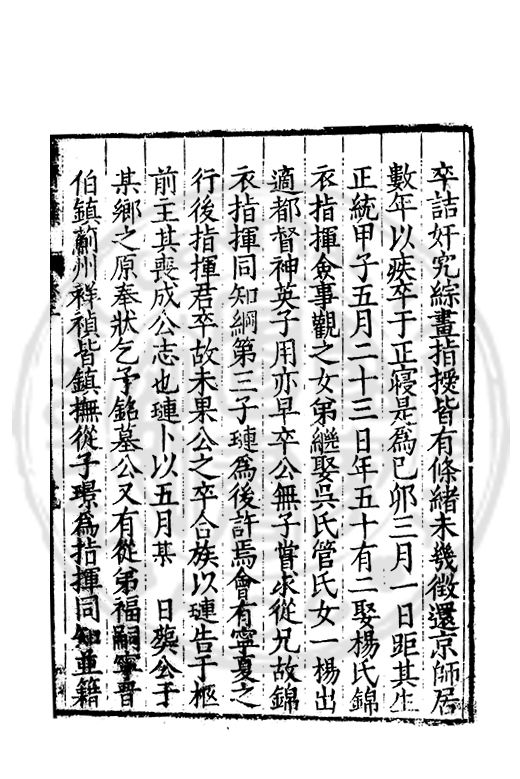 卒詰奸宄綜畫指授皆有條緒未幾徵還京師居
數年以疾卒于正寢是爲己卯三月一日距其生
正統甲子五月二十三日年五十有二娶楊氏錦
衣指揮僉事觀之女弟繼娶吳氏管氏女一楊出
適都督神英子用亦早卒公無子嘗求從兄故錦
衣指揮同知綱第三子璉爲後許焉會有寧夏之
行後指揮君卒故未果公之卒合族以璉告于柩
前主其喪成公志也璉卜以五月某日葬公于
某鄉之原奉狀乞予銘墓公又有從弟福嗣寧晋
伯鎮薊州祥禎皆鎮撫從子璟爲指揮同知並籍